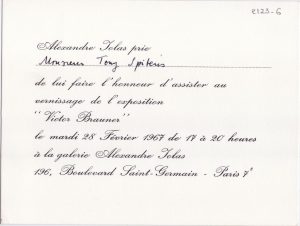 2123-6
Alexandre Iolas prie
Monsieur Tony Spiteris
de lui faire l'honneur d'assister au
vernissage de l'exposition
"Victor Brauner"
le mardi 28 Février 1967 de 17 à 20 heures
à la galerie Alexandre Iolas
196, Boulevard Saint-Germain - Paris 7e